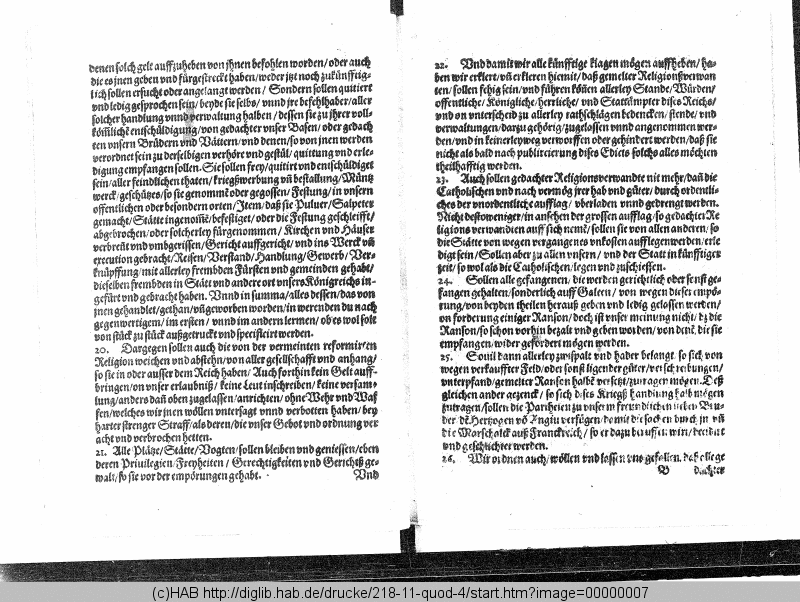 denen solch gelt auffzuheben von jhnen befohlen worden/oder auch
die es jnen geben vnd fürgestreckt haben/weder jtzt noch zukünfftig-
lich sollen ersucht oder angelangt werden/ Sondern sollen quitiert
vnd ledig gesprochen sein/beyde sie selbs/vnnd jre befehlhaber/aller
solcher handlung vnnd verwaltung halben/dessen sie zu jhrer voll-
entschüldigung/von gedachter vnser Basen/oder gedach
ten vnsern Brüdern vnd Vättern/vnd denen/so von jnen werden
verordnet sein zu derselbigen verhöre vnd gestäl/quittung vnd erle-
digung empfangen sollen. Sie sollen frey/quitirt vnd entschüldiget
sein/aller feindlichen thaten/kriegßwerbung vñ bestallung/Müntz
werck/geschütz/so sie genommẽ oder gegossen/Festung/in vnsern
offentlichen oder besondern orten/Jtem/daß sie Puluer/Salpeter
gemacht/Stätte ingenomẽ/befestiget/oder die Festung geschleifft/
abgebrochen/oder solcherley fürgenommen/Kirchen vnd Häuser
verbreñt vnd vmbgerissen/Gericht auffgericht/vnd ins Werck vñ
execution gebracht/Reisen/Verstand/Handlung/Gewerb/Ver-
knüpffung/mit allerley frembden Fürsten vnd gemeinden gehabt/
dieselben frembden in Stätt vnd andere ort vnsers Königreichs in-
gefürt vnd gebracht haben. Vnnd in summa/alles dessen/das von
jnen gehandlet/gethan/vñ geworben worden/in werenden du nach
gegenwertigem/im ersten/vnnd im andern lermen/ob es wol solt
von stück zu stück außgetruckt vnd specificirt werden.
20. Dargegen sollen auch die von der vermeinten reformirten
Religion weichen vnd abstehn/von aller gesellschafft vnd anhang/
so sie in oder ausser dem Reich haben/ Auch forthin kein Gelt auff-
bringen/on vnser erlaubniß/keine Leut inschreiben/keine versam-
lung/anders dañ oben zugelassen/anrichten/ohne Wehr vnd Waf
fen/welches wir jnen wöllen vntersagt vnnd verbotten haben/bey
harter strenger Straff/als deren/die vnser Gebot vnd ordnung ver
acht vnd verbrochen hetten.
21. Alle Plätze/Stätte/Vogten/sollen bleiben vnd geniessen/eben
deren Priuilegien/Freyheiten/ Gerechtigkeiten vnd Gerichtß ge-
walt/so sie vor der empörungen gehabt.
Vnd
22. Vnd damit wir alle künfftige klagen mögen auffheben/ ha-
ben wir erklert/vñ erkleren hiemit/daß gemelter Religionßverwan
ten/ sollen fehig sein/vnd führen köñen allerley Stande/Würden/
offentliche/Königliche/herrliche/ vnd Stattämpter dises Reichs/
vnd on vnterscheid zu allerley rathschlägen bedencken/stende/vnd
verwaltungen/darzu gehörig/zugelassen vnnd angenommen wer-
den/vnd in keinerley weg verworffen oder gehindert werden/daß sie
nicht als bald nach publicierung dises Edicts solchs alles möchten
theilhafftig werden.
23. Auch sollen gedachter Religionsverwandte nit mehr/dañ die
Catholischen vnd nach vermög jrer hab vnd güter/durch ordentli-
ches der vnordentliche aufflag/ vberladen vnnd gedrengt werden.
Nicht destoweniger/in ansehen der grossen aufflag/so gedachter Re
ligions verwandten auff sich nemẽ/sollen sie von allen anderen/so
die Stätte von wegen vergangenes vnkosten aufflegen werden/erle
digt sein/Sollen aber zu allen vnsern/ vnd der Statt in künfftiger
zeit/so wol als die Catholischen/legen vnd zuschiessen.
24. Sollen alle gefangenen/die werden gerichtlich oder sonst ge-
fangen gehalten/sonderlich auff Galeen/ von wegen diser empö-
rung/von beyden theilen herauß geben vnd ledig gelossen werden/
on forderung einiger Ranson/doch ist vnser meinung nicht/dz die
Ranson/so schon vorhin bezalt vnd geben worden/von denẽ/die sie
empfangen/wider gefordert mögen werden.
25. Souil dann allerley zwispalt vnd hader belangt/so sich von
wegen verkauffter Feld/oder sonst ligender güter/verschreibungen/
vnterpfand/gemelter Ranson halbẽ versetzt/zutragen mögen. Deß
gleichen ander gezenck/so sich dises Kriegß handlung halb mögen
zutragen/sollen die Partheien zu vnserm freundlichen lieben Bru-
der dẽ Hertzogen võ Angiu verfügen/damit die sachen durch jn vñ
die Marschalck auß Franckreich/so er dazu beruffen wirt/
vnd geschlichtet werden.
26. Wir ordnen auch/wöllen vnd lassen vns gefallen/daß alle ge
B dachter
(c)HAB http://diglib.hab.de/drucke/218-11-quod-4/start.htm?image=00000007